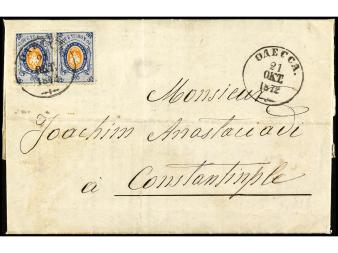 ОДЕССА.
21
ОКТ.
1872
Monsieur
Joachim Anastasiadi
à
Constantinple